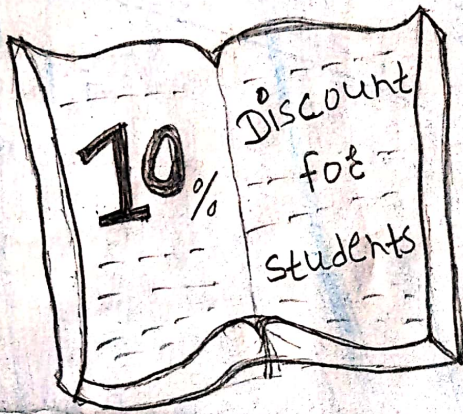 10%
Discount
for
students